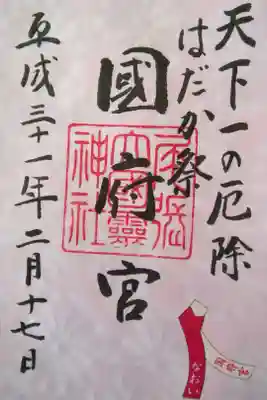 天下一の厄除
はだか祭
國府宮
尾張大國霊神社
平成三十一年二月十七日
なおい